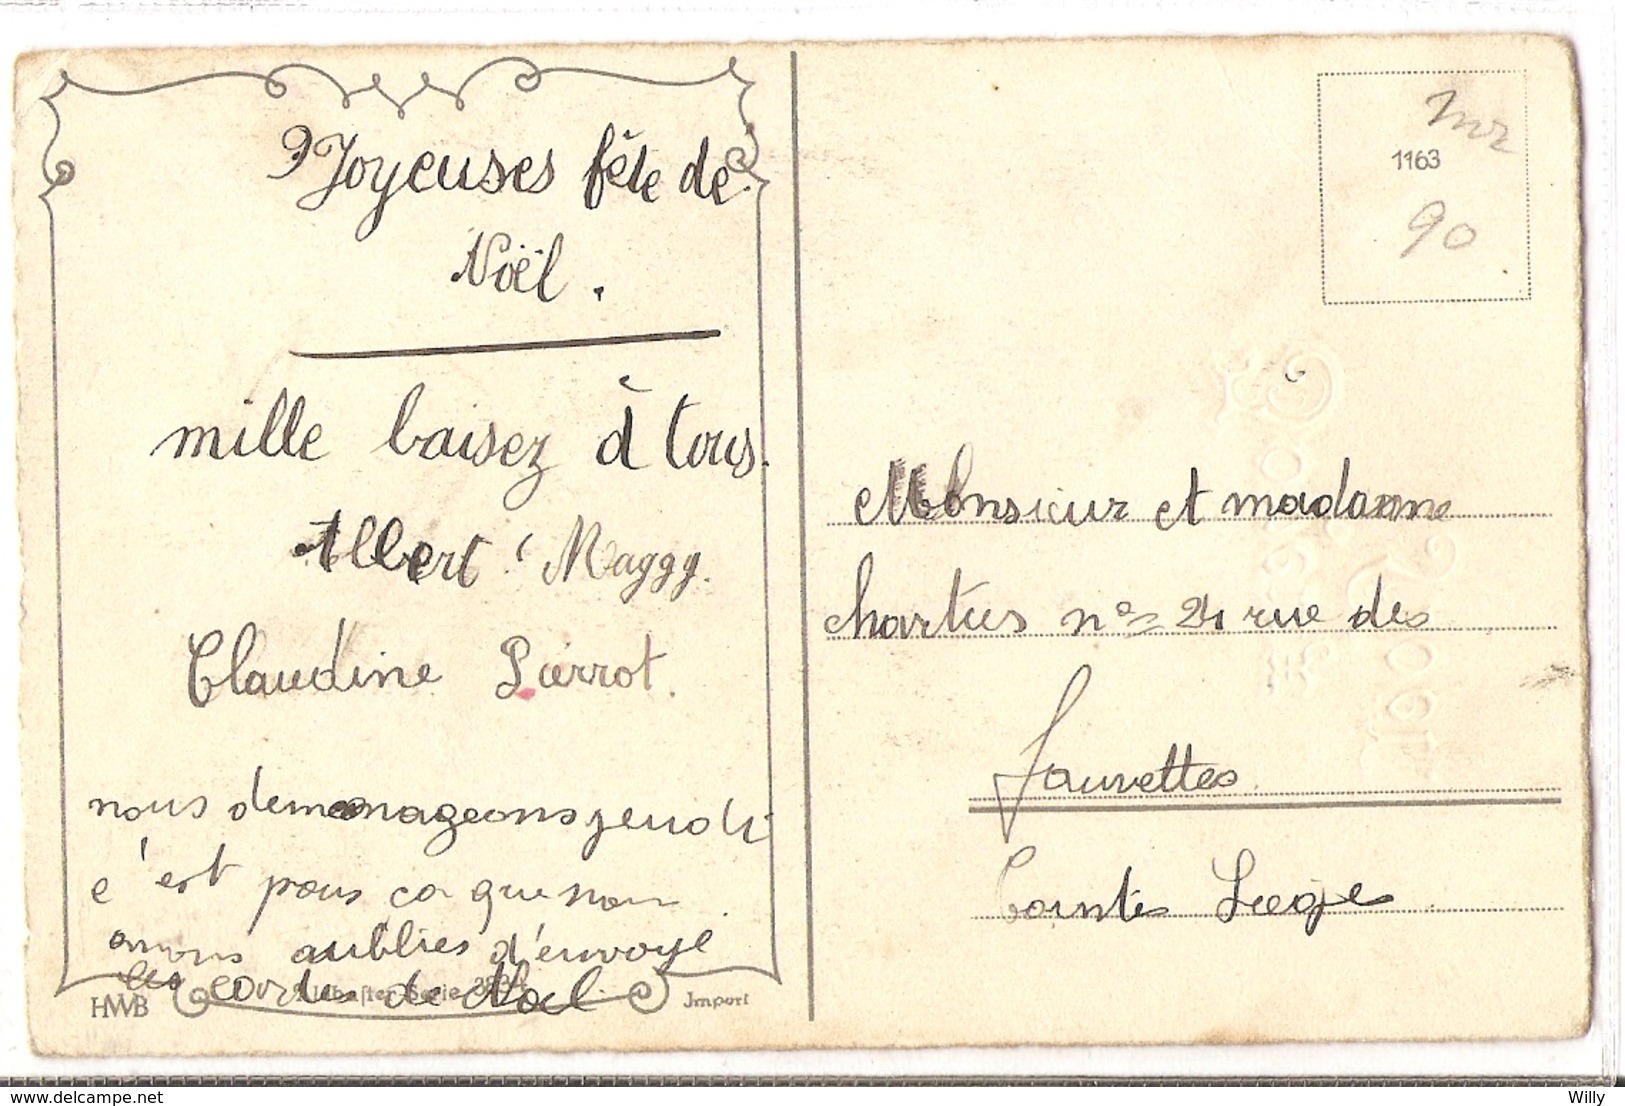 Joyeuses fête de
Noël.
mille baisez à tous.
Albert. Maggy.
Claudine Pierrot.
nous demenageons jeudi
c'est pous ça que nous
avons aublies d'envoye
les cartes de Noel.
HWB
Import
1163
90
Monsieur et madamme
chartus n° 24 rue des
fauvettes
Cointe Liege
delcampe.net
Willy